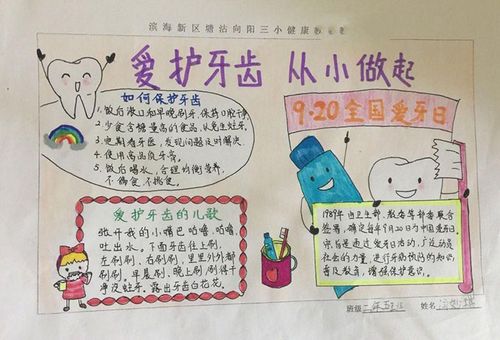 滨海新区塘沽向阳三小健康
爱护牙齿 从小做起
如何保护牙齿
1、饭后漱口和早晚刷牙,保持口腔干净
2、少食含糖量高的食品,以免生蛀牙。
3、定期看牙医,发现问题及时解决。
4、使用高品质牙膏。
5、饭后喝水,合理均衡营养,
不偏食、不挑食。
9·20全国爱牙日
爱护牙齿的儿歌
张开我的小嘴巴咕噜,咕噜,
吐出水。下面牙齿往上刷,
左刷刷,右刷刷,里里外外都
刷刷,早晨刷,晚上刷,刷得干
净没蛀牙。露出牙齿白花花。
1989年,由卫生部、教委等部委联合
签署,确定每年9月20日为中国爱牙日。
宗旨是通过爱牙日活动,广泛动员
社会的力量,进行牙病防治的知识
普及教育,增强保护意识。
班级 二年五班 姓名